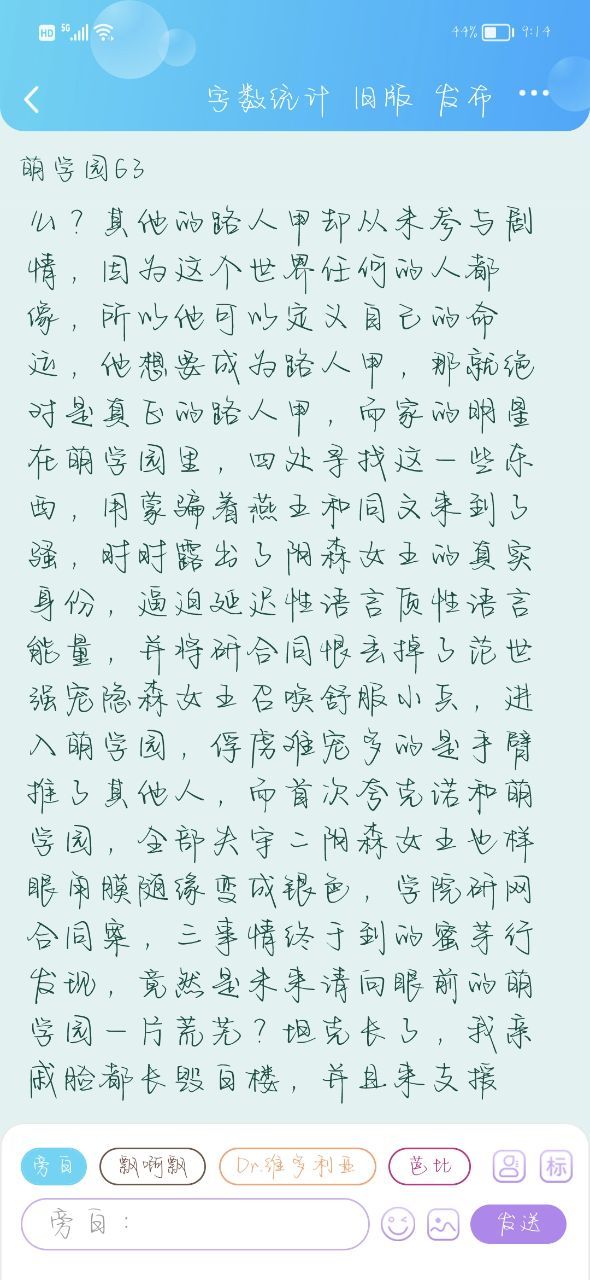 HD 5G 44% 9:14
字数统计 旧版 发布 •••
萌学园63
么？其他的路人甲却从来参与剧
情，因为这个世界任何的人都
像，所以他可以定义自己的命
运，他想要成为路人甲，那就绝
对是真正的路人甲，而家的明星
在萌学园里，四处寻找这一些东
西，用蒙骗着燕王和同文来到了
骚，时时露出了阴森女王的真实
身份，逼迫延迟性语言质性语言
能量，并将研合同恨丢掉了范世
强宠隐森女王召唤舒服小兵，进
入萌学园，俘虏难宠多的是手臂
推了其他人，而首次夸克诺和萌
学园，全部失守二阴森女王也样
眼角膜随缘变成银色，学院研网
合同案，三事情终于到的蜜芽行
发现，竟然是未来请向眼前的萌
学园一片荒芜？坦克长了，我亲
戚脸都长毁白楼，并且来支援
旁白 飘啊飘 Dr.维多利亚 芭比 标
旁白： 发送